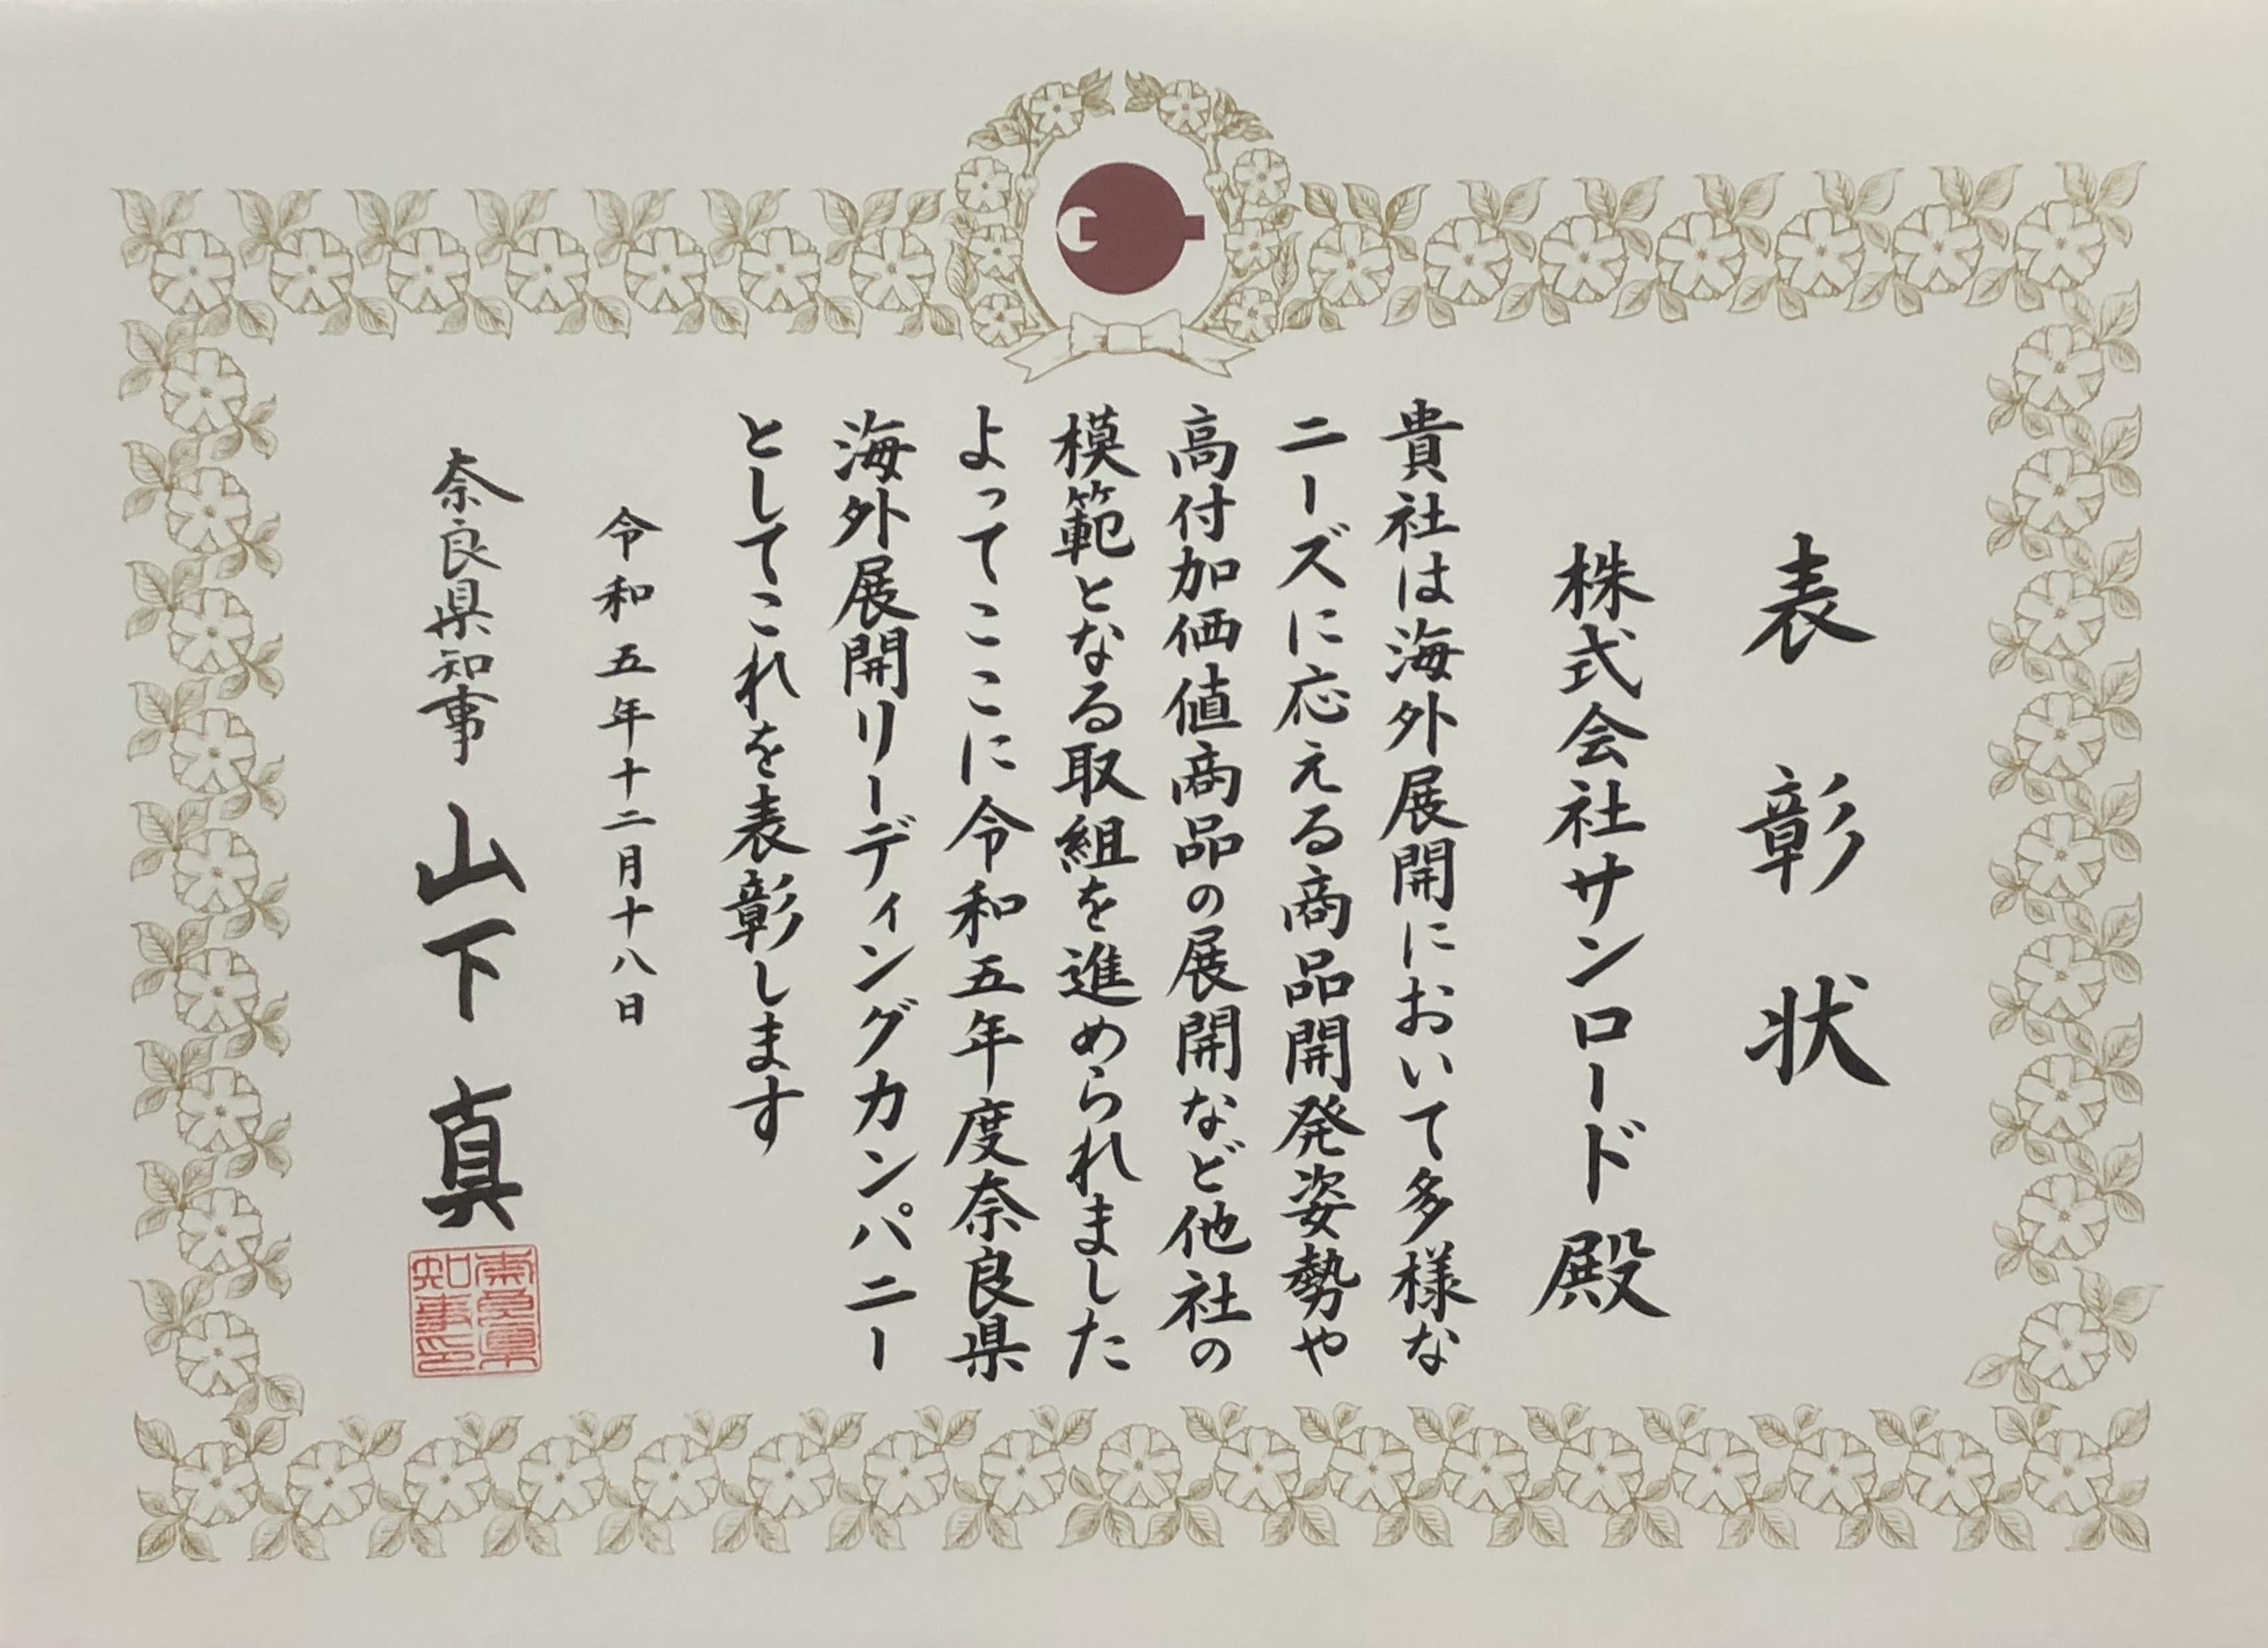 表彰状
株式会社サンロード殿
貴社は海外展開において多様な
ニーズに応える商品開発姿勢や
高付加価値商品の展開など他社の
模範となる取組を進められました
よってここに令和五年度奈良県
海外展開リーディングカンパニー
としてこれを表彰します
令和五年十二月十八日
奈良県知事 山下 真
奈良県
知事印